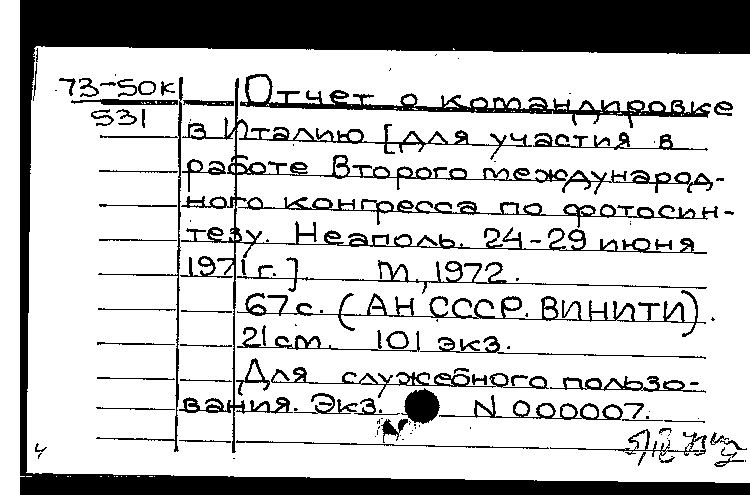 73-50к Отчет о командировке
531 в Италию [для участия в
работе Второго международ-
ного конгресса по фотосин-
тезу. Неаполь. 24-29 июня
1971 г.] М., 1972.
67 с. (АН СССР. ВИНИТИ).
21 см. 101 экз.
Для служебного пользо-
вания. Экз. N 000007.
4